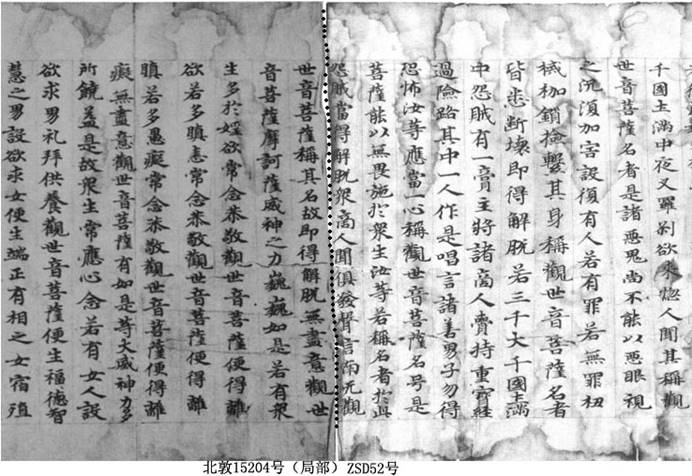 千國土滿中夜叉羅剎欲來惱人聞其稱觀
世音菩薩名者是諸惡鬼尚不能以惡眼視
之況復加害設復有人若有罪若無罪杻
械枷鎖撿繫其身稱觀世音菩薩名者
皆悉斷壞即得解脫若三千大千國土滿
中怨賊有一商主將諸商人賷持重寶經
過險路其中一人作是唱言諸善男子勿得
恐怖汝等應當一心稱觀世音菩薩名号是
菩薩能以無畏施於衆生汝等若稱名者於此
怨賊當得解脫衆商人聞俱發聲言南无觀
世音菩薩稱其名故即得解脫無盡意觀世
音菩薩摩訶薩威神之力巍巍如是若有衆
生多於婬欲常念恭敬觀世音菩薩便得離
欲若多瞋恚常念恭敬觀世音菩薩便得離
瞋若多愚癡常念恭敬觀世音菩薩便得離
癡無盡意觀世音菩薩有如是等大威神力多
所饒益是故衆生常應心念若有女人設
欲求男礼拜供養觀世音菩薩便生福德智
慧之男設欲求女便生端正有相之女宿殖
北敦15204号（局部）ZSD52号